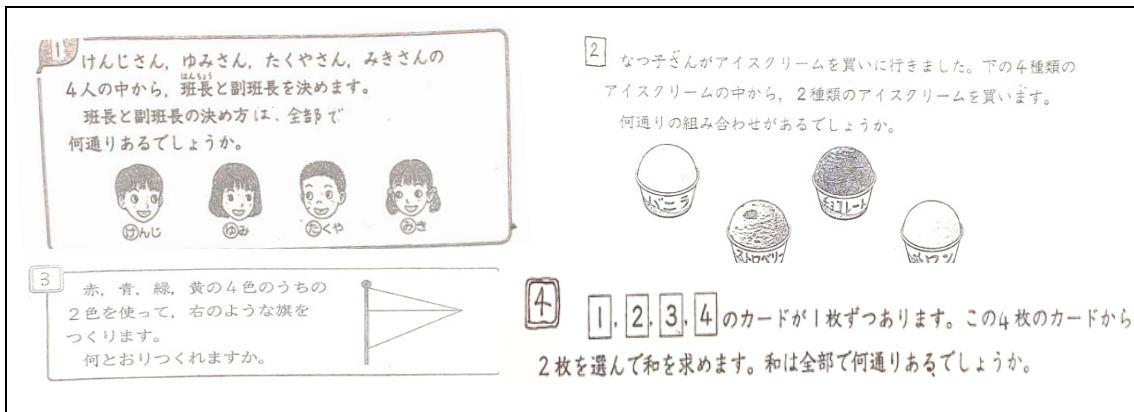 1
けんじさん，ゆみさん，たくやさん，みきさんの
4人の中から，班長と副班長を決めます。
はんちょう
班長と副班長の決め方は，全部で
何通りあるでしょうか。
けんじ ゆみ たくや みき
2
なつ子さんがアイスクリームを買いに行きました。下の4種類の
アイスクリームの中から，2種類のアイスクリームを買います。
何通りの組み合わせがあるでしょうか。
バニラ
チョコレート
ストロベリー
メロン
3
赤，青，緑，黄の4色のうちの
2色を使って，右のような旗を
つくります。
何とおりつくれますか。
4
1，2，3，4のカードが1枚ずつあります。この4枚のカードから
2枚を選んで和を求めます。和は全部で何通りあるでしょうか。